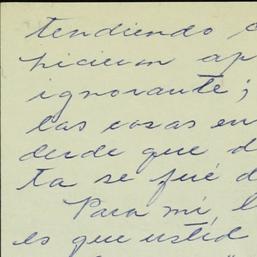 tendiendo
hicieron ap
ignorante;
las cosas en
desde que d
ta se fué d
Para mí, l
es que usted